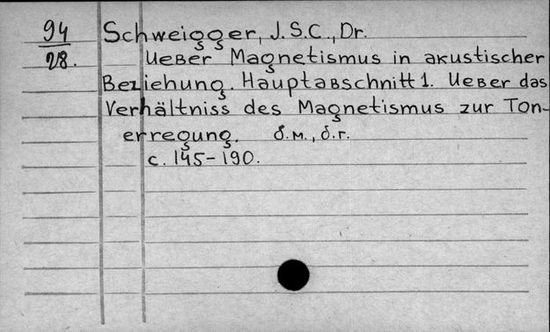 94
28.
Schweigger, J.S.C., Dr.
Ueber Magnetismus in akustischer
Beziehung. Hauptabschnitt 1. Ueber das
Verhältniss des Magnetismus zur Ton-
erregung. б.м., б.г.
с. 145-190.